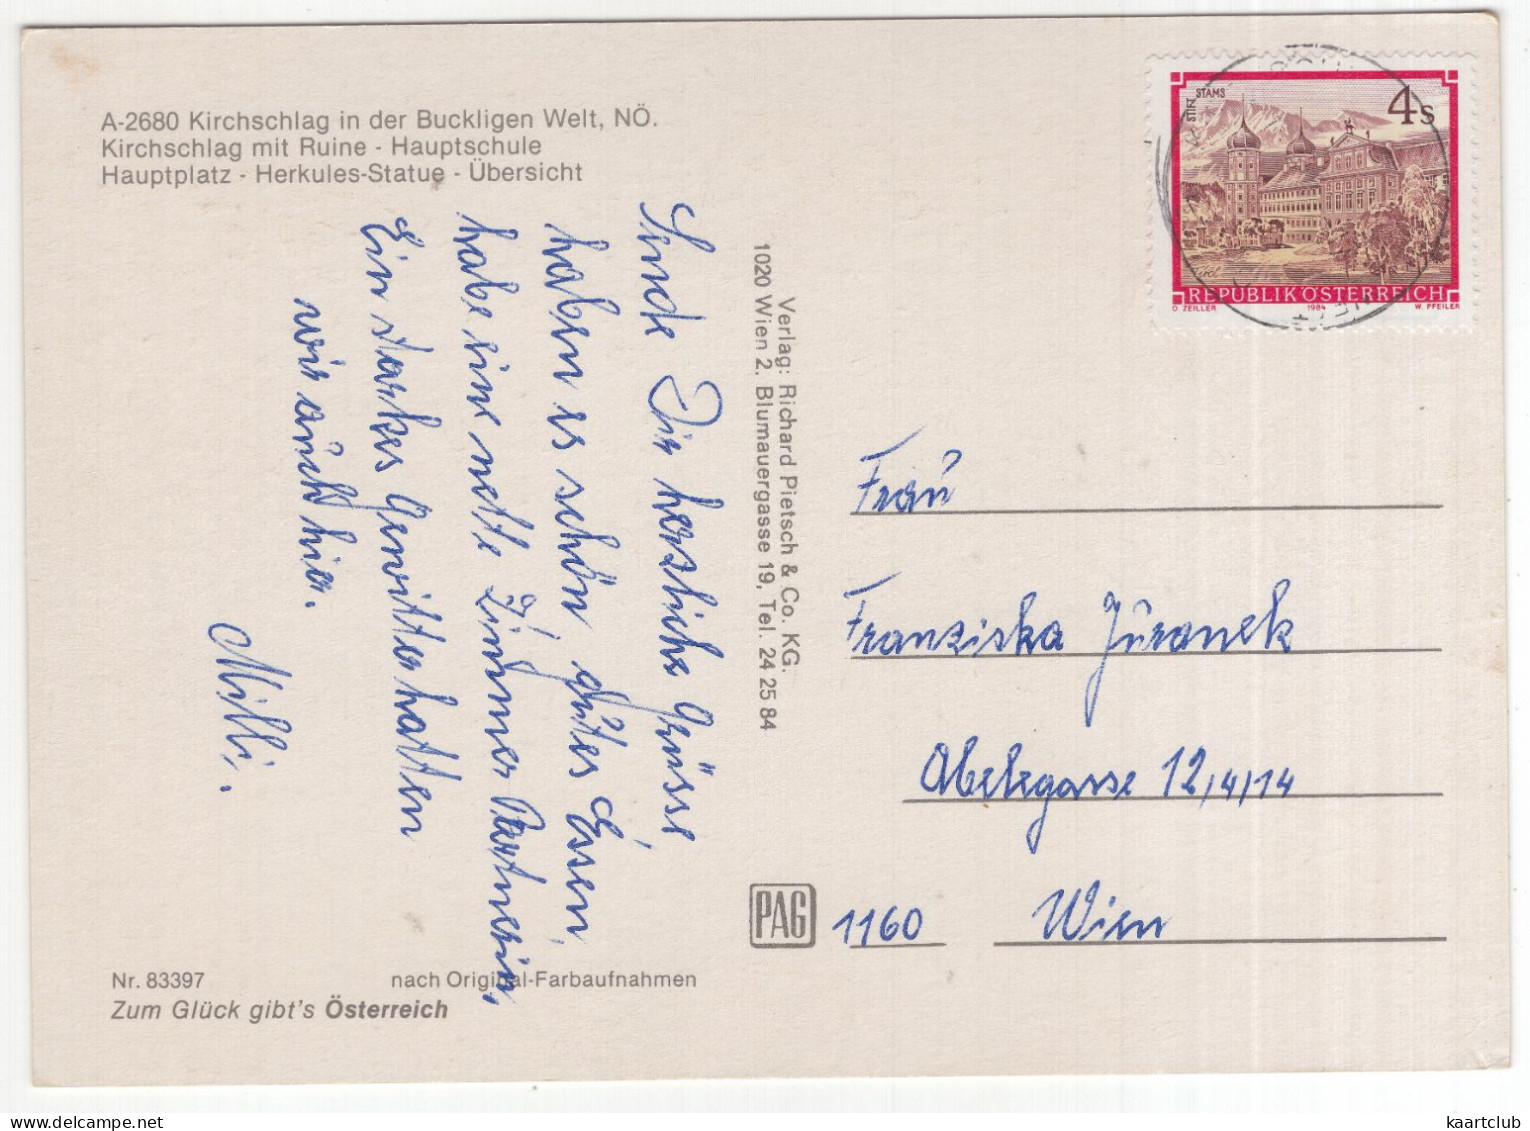 A-2680 Kirchschlag in der Buckligen Welt, NÖ.
Kirchschlag mit Ruine - Hauptschule
Hauptplatz - Herkules-Statue - Übersicht
Sende Dir herzliche Grüsse
haben es schön, gutes Essen,
habe eine nette Zimmer Partnerin,
Ein starkes Gewitter hatten
wir auch hier.
Milli.
Verlag: Richard Pietsch & Co. KG.
1020 Wien 2, Blumauergasse 19, Tel. 24 25 84
STIFT STAMS
4 S
Tirol
REPUBLIK ÖSTERREICH
O. ZEILLER 1984 W. PFEILER
Frau
Franziska Juranek
Abelegasse 12/4/14
1160 Wien
PAG
Nr. 83397 nach Original-Farbaufnahmen
Zum Glück gibt's Österreich
delcampe.net
kaartclub